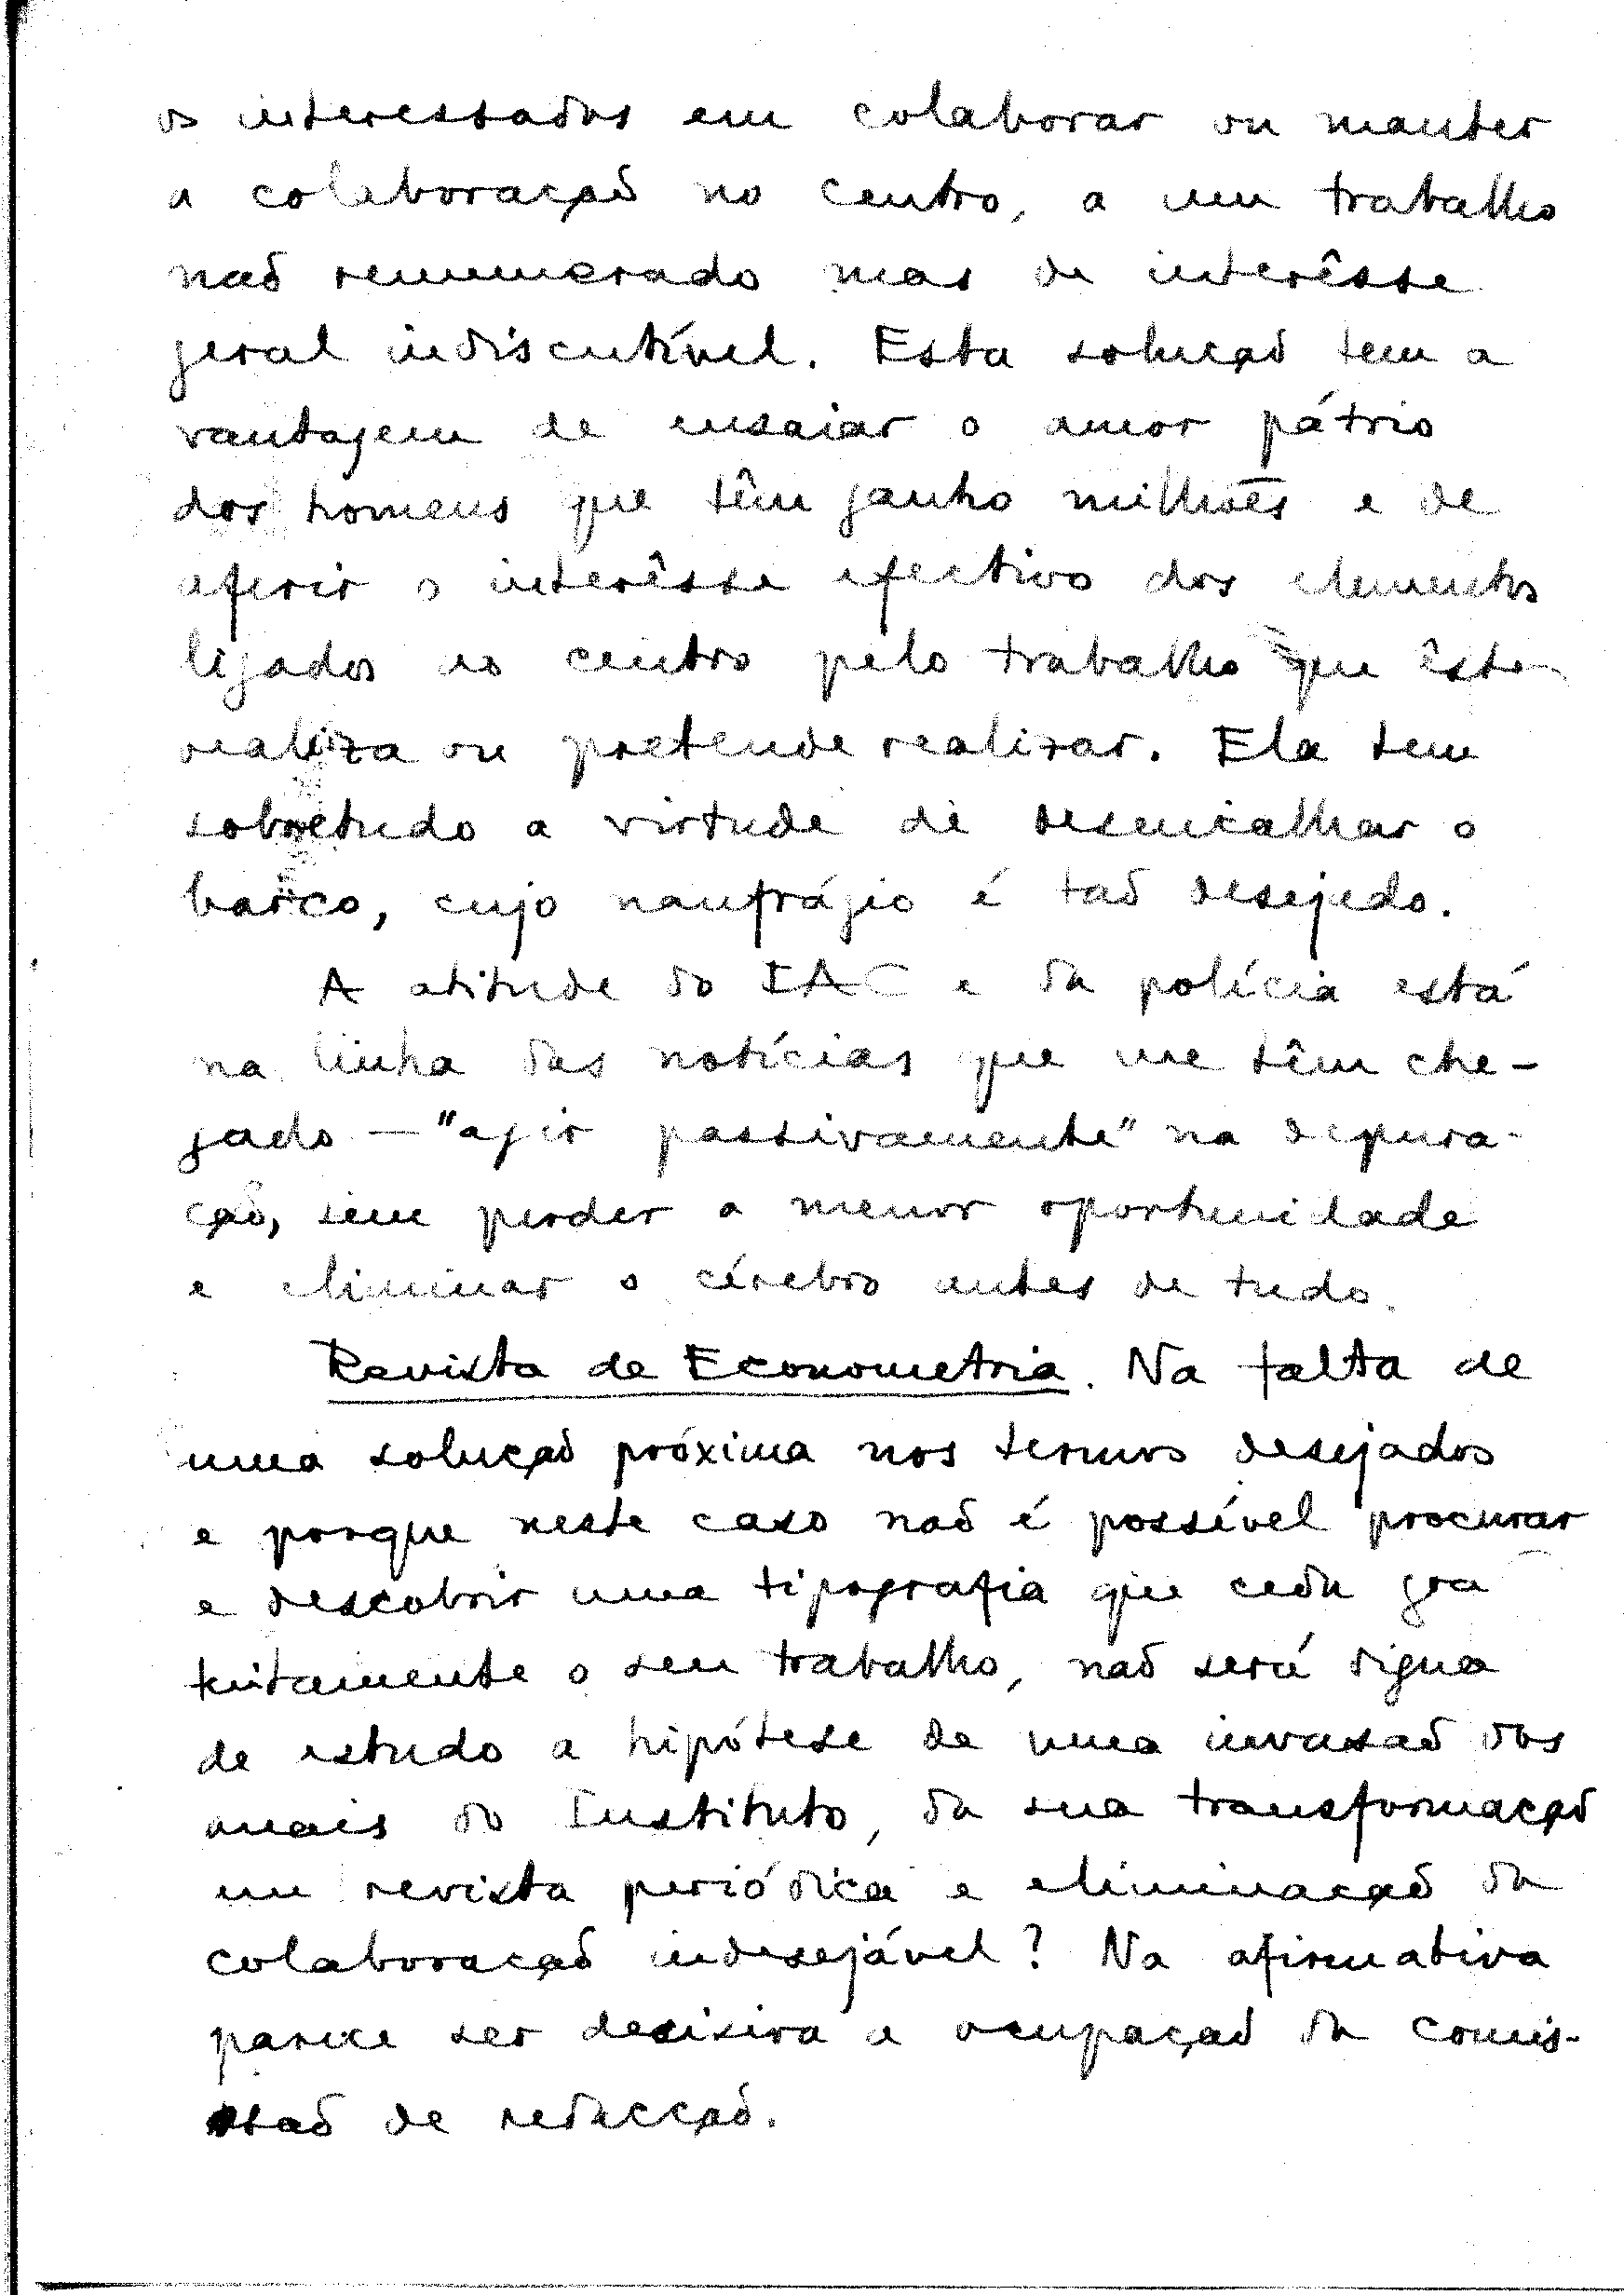 os interessados em colaborar ou manter
a colaboração no centro, a um trabalho
não remunerado mas de interêsse
geral indiscutível. Esta solução tem a
vantagem de ensaiar o amor pátrio
dos homens que têm ganho milhões e de
aferir o interêsse efectivo dos elementos
ligados ao centro pelo trabalho que êste
realiza ou pretende realizar. Ela tem
sobretudo a virtude de desencalhar o
barco, cujo naufrágio é tão desejado.
A atitude do IAC e da polícia está
na linha das notícias que me têm che-
gado — "agir passivamente" na depura-
ção, sem perder a menor oportunidade
e eliminar o cérebro antes de tudo.
Revista de Econometria. Na falta de
uma solução próxima nos termos desejados
e porque neste caso não é possível procurar
e descobrir uma tipografia que ceda gra
tuitamente o seu trabalho, não será digna
de estudo a hipótese de uma invasão dos
anais do Instituto, da sua transformação
em revista periódica e eliminação da
colaboração indesejável? Na afirmativa
parece ser decisiva a ocupação da comis-
são de redacção.